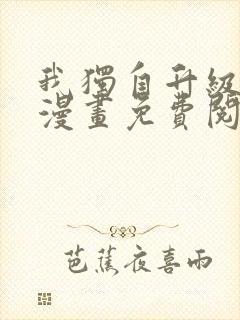 我獨自升級
漫畫免費閱
芭蕉夜喜雨